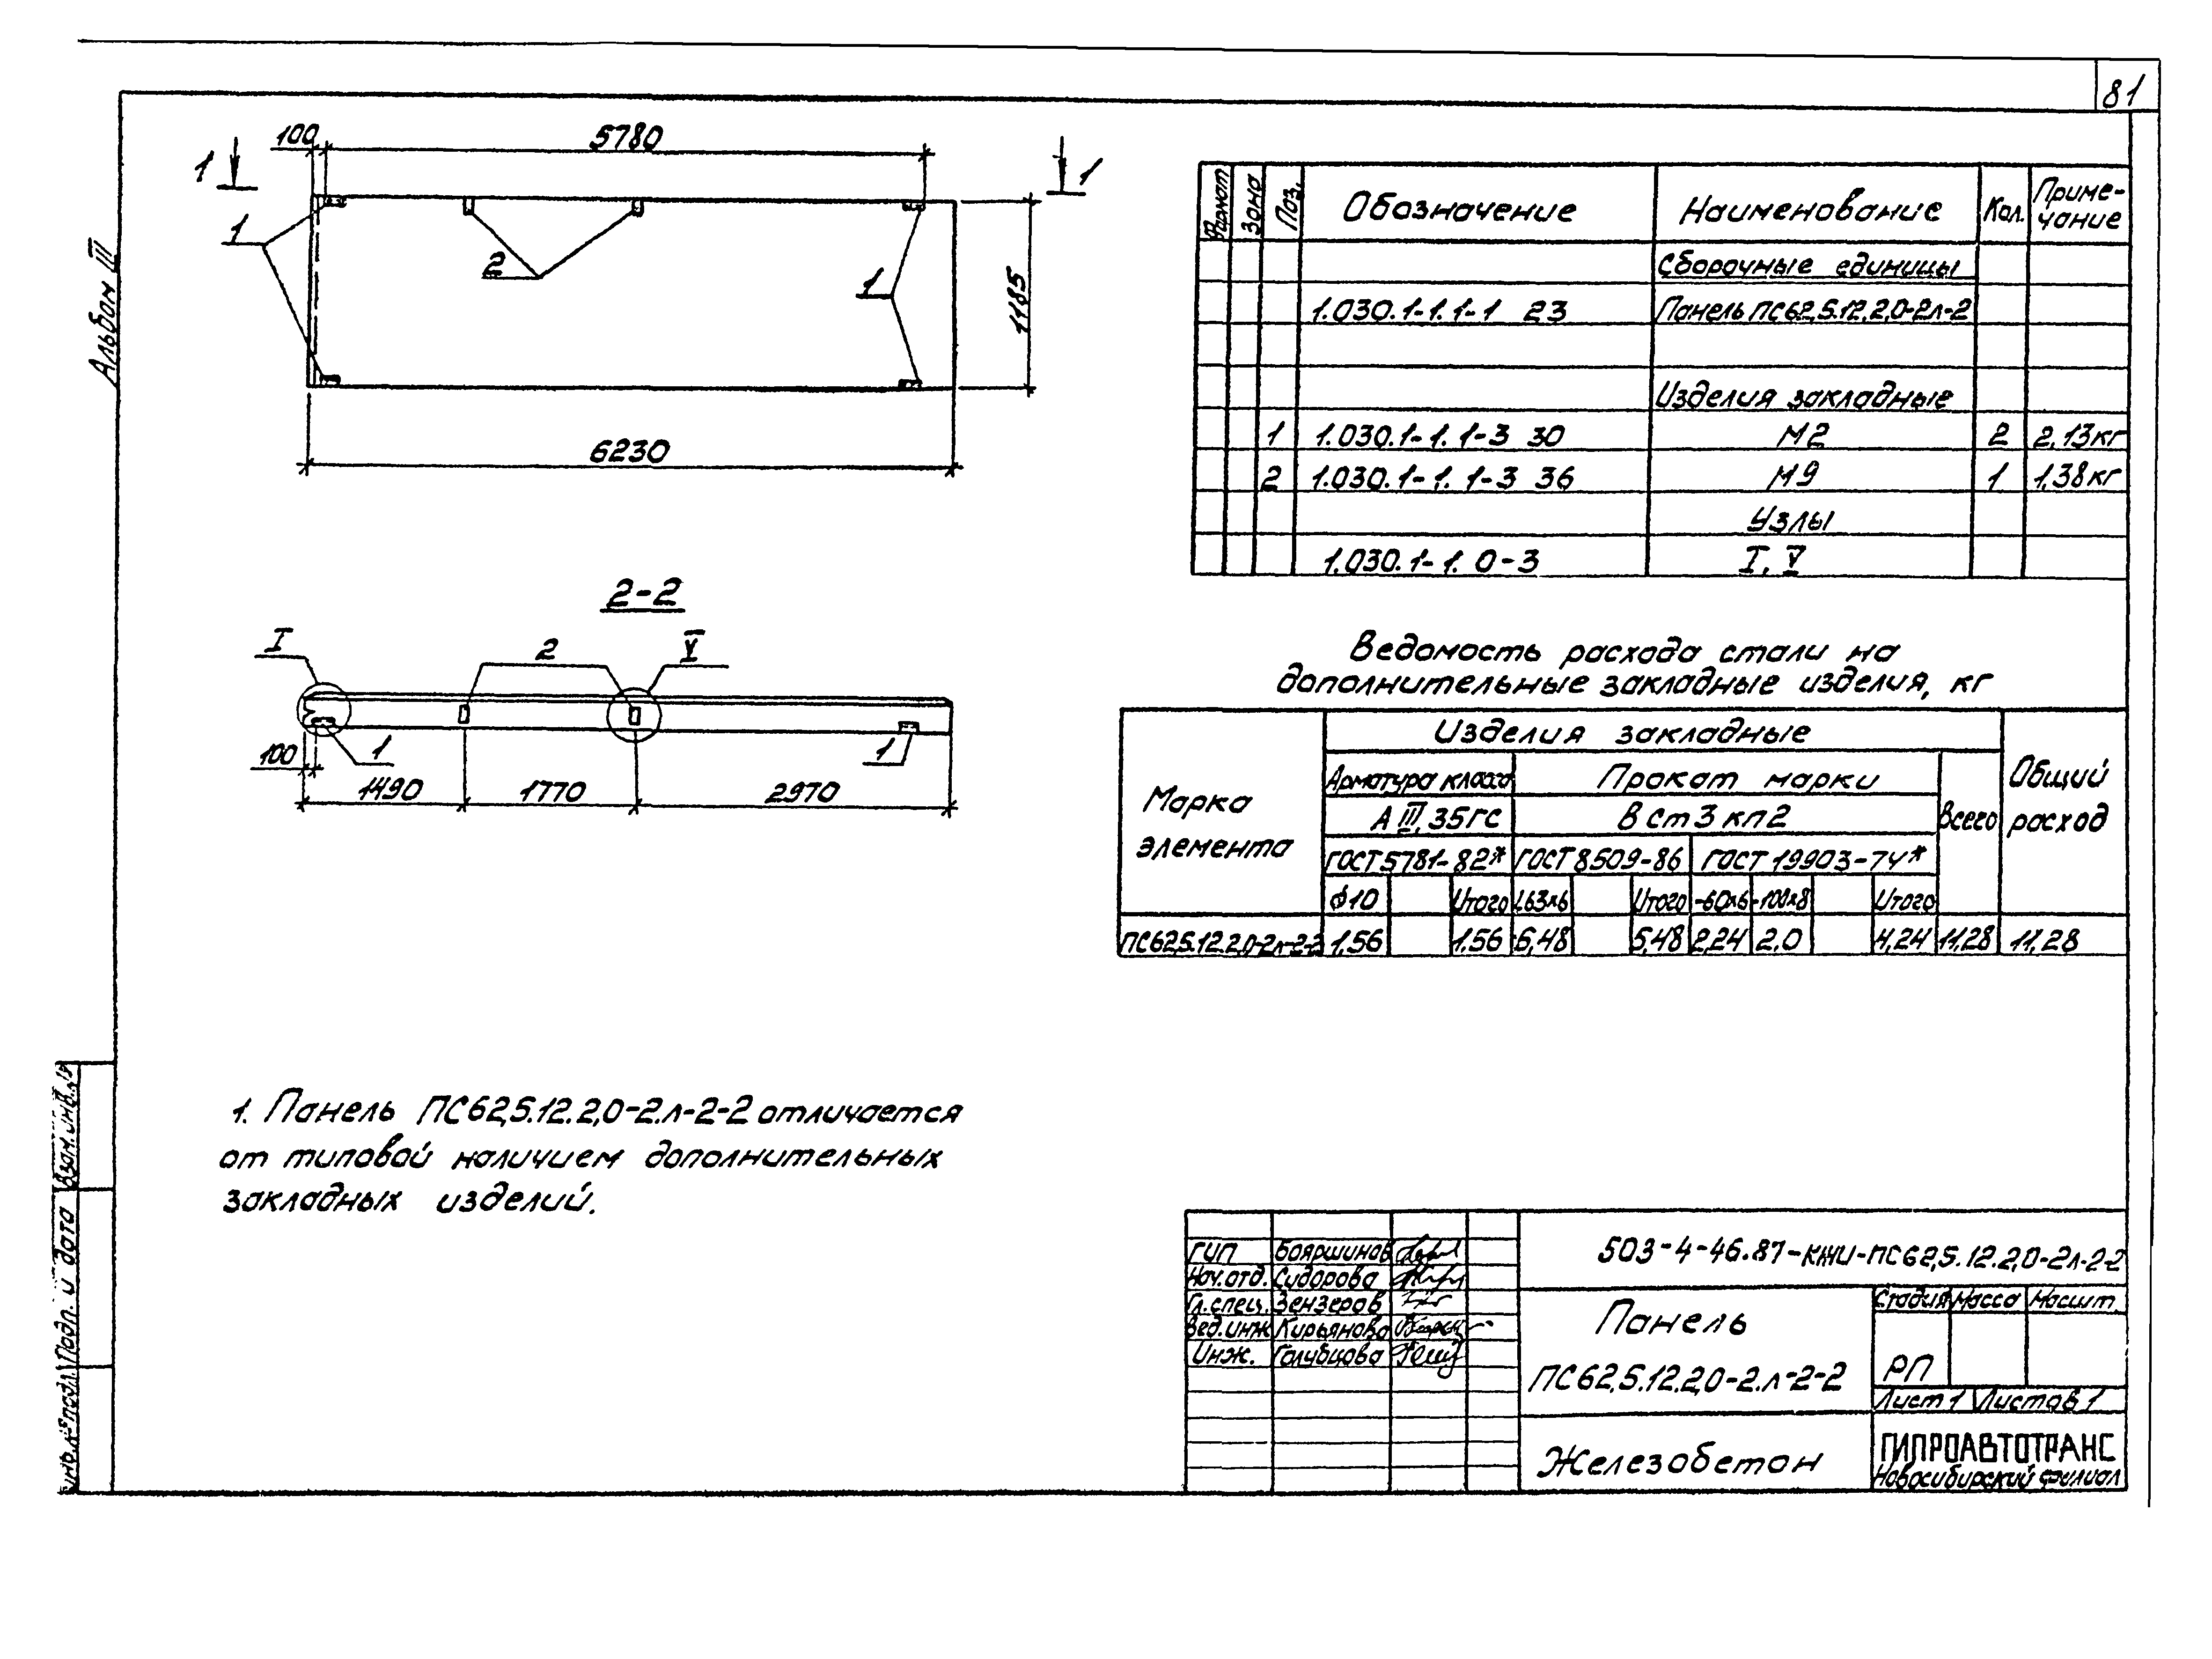 81
Альбом III
100
5780
1
1
1
2
1
1185
6230
2-2
I
2
V
100
1
1
1490
1770
2970
Формат Зона Поз. Обозначение Наименование Кол. Приме-
чание
Сборочные единицы
1.030.1-1.1-1 23 Панель ПС62,5.12.2,0-2л-2
Изделия закладные
1 1.030.1-1.1-3 30 М2 2 2,13кг
2 1.030.1-1.1-3 36 М9 1 1,38кг
Узлы
1.030.1-1.0-3 I, V
Ведомость расхода стали на
дополнительные закладные изделия, кг
Марка
элемента
Изделия закладные
Общий
расход
Арматура класса Прокат марки
Всего
А III, 35ГС Вст3кп2
ГОСТ 5781-82* ГОСТ 8509-86 ГОСТ 19903-74*
ϕ10 Итого L63х6 Итого -60х6 -100х8 Итого
ПС62,5.12.2,0-2л-2-2 1,56 1,56 5,48 5,48 2,24 2,0 4,24 11,28 11,28
1. Панель ПС62,5.12.2,0-2.л-2-2 отличается
от типовой наличием дополнительных
закладных изделий.
Взам. инв. №
Подп. и дата
Инв. № подл.
ГИП Бояршинов
Нач.отд. Сидорова
Гл.спец. Зензеров
Вед.инж Кирьянова
Инж. Голубцова
503-4-46.87-КЖИ-ПС62,5.12.2,0-2л-2-2
Панель
ПС62,5.12.2,0-2.л-2-2
Стадия Масса Масшт.
РП
Лист 1 Листов 1
Железобетон
ГИПРОАВТОТРАНС
Новосибирский филиал